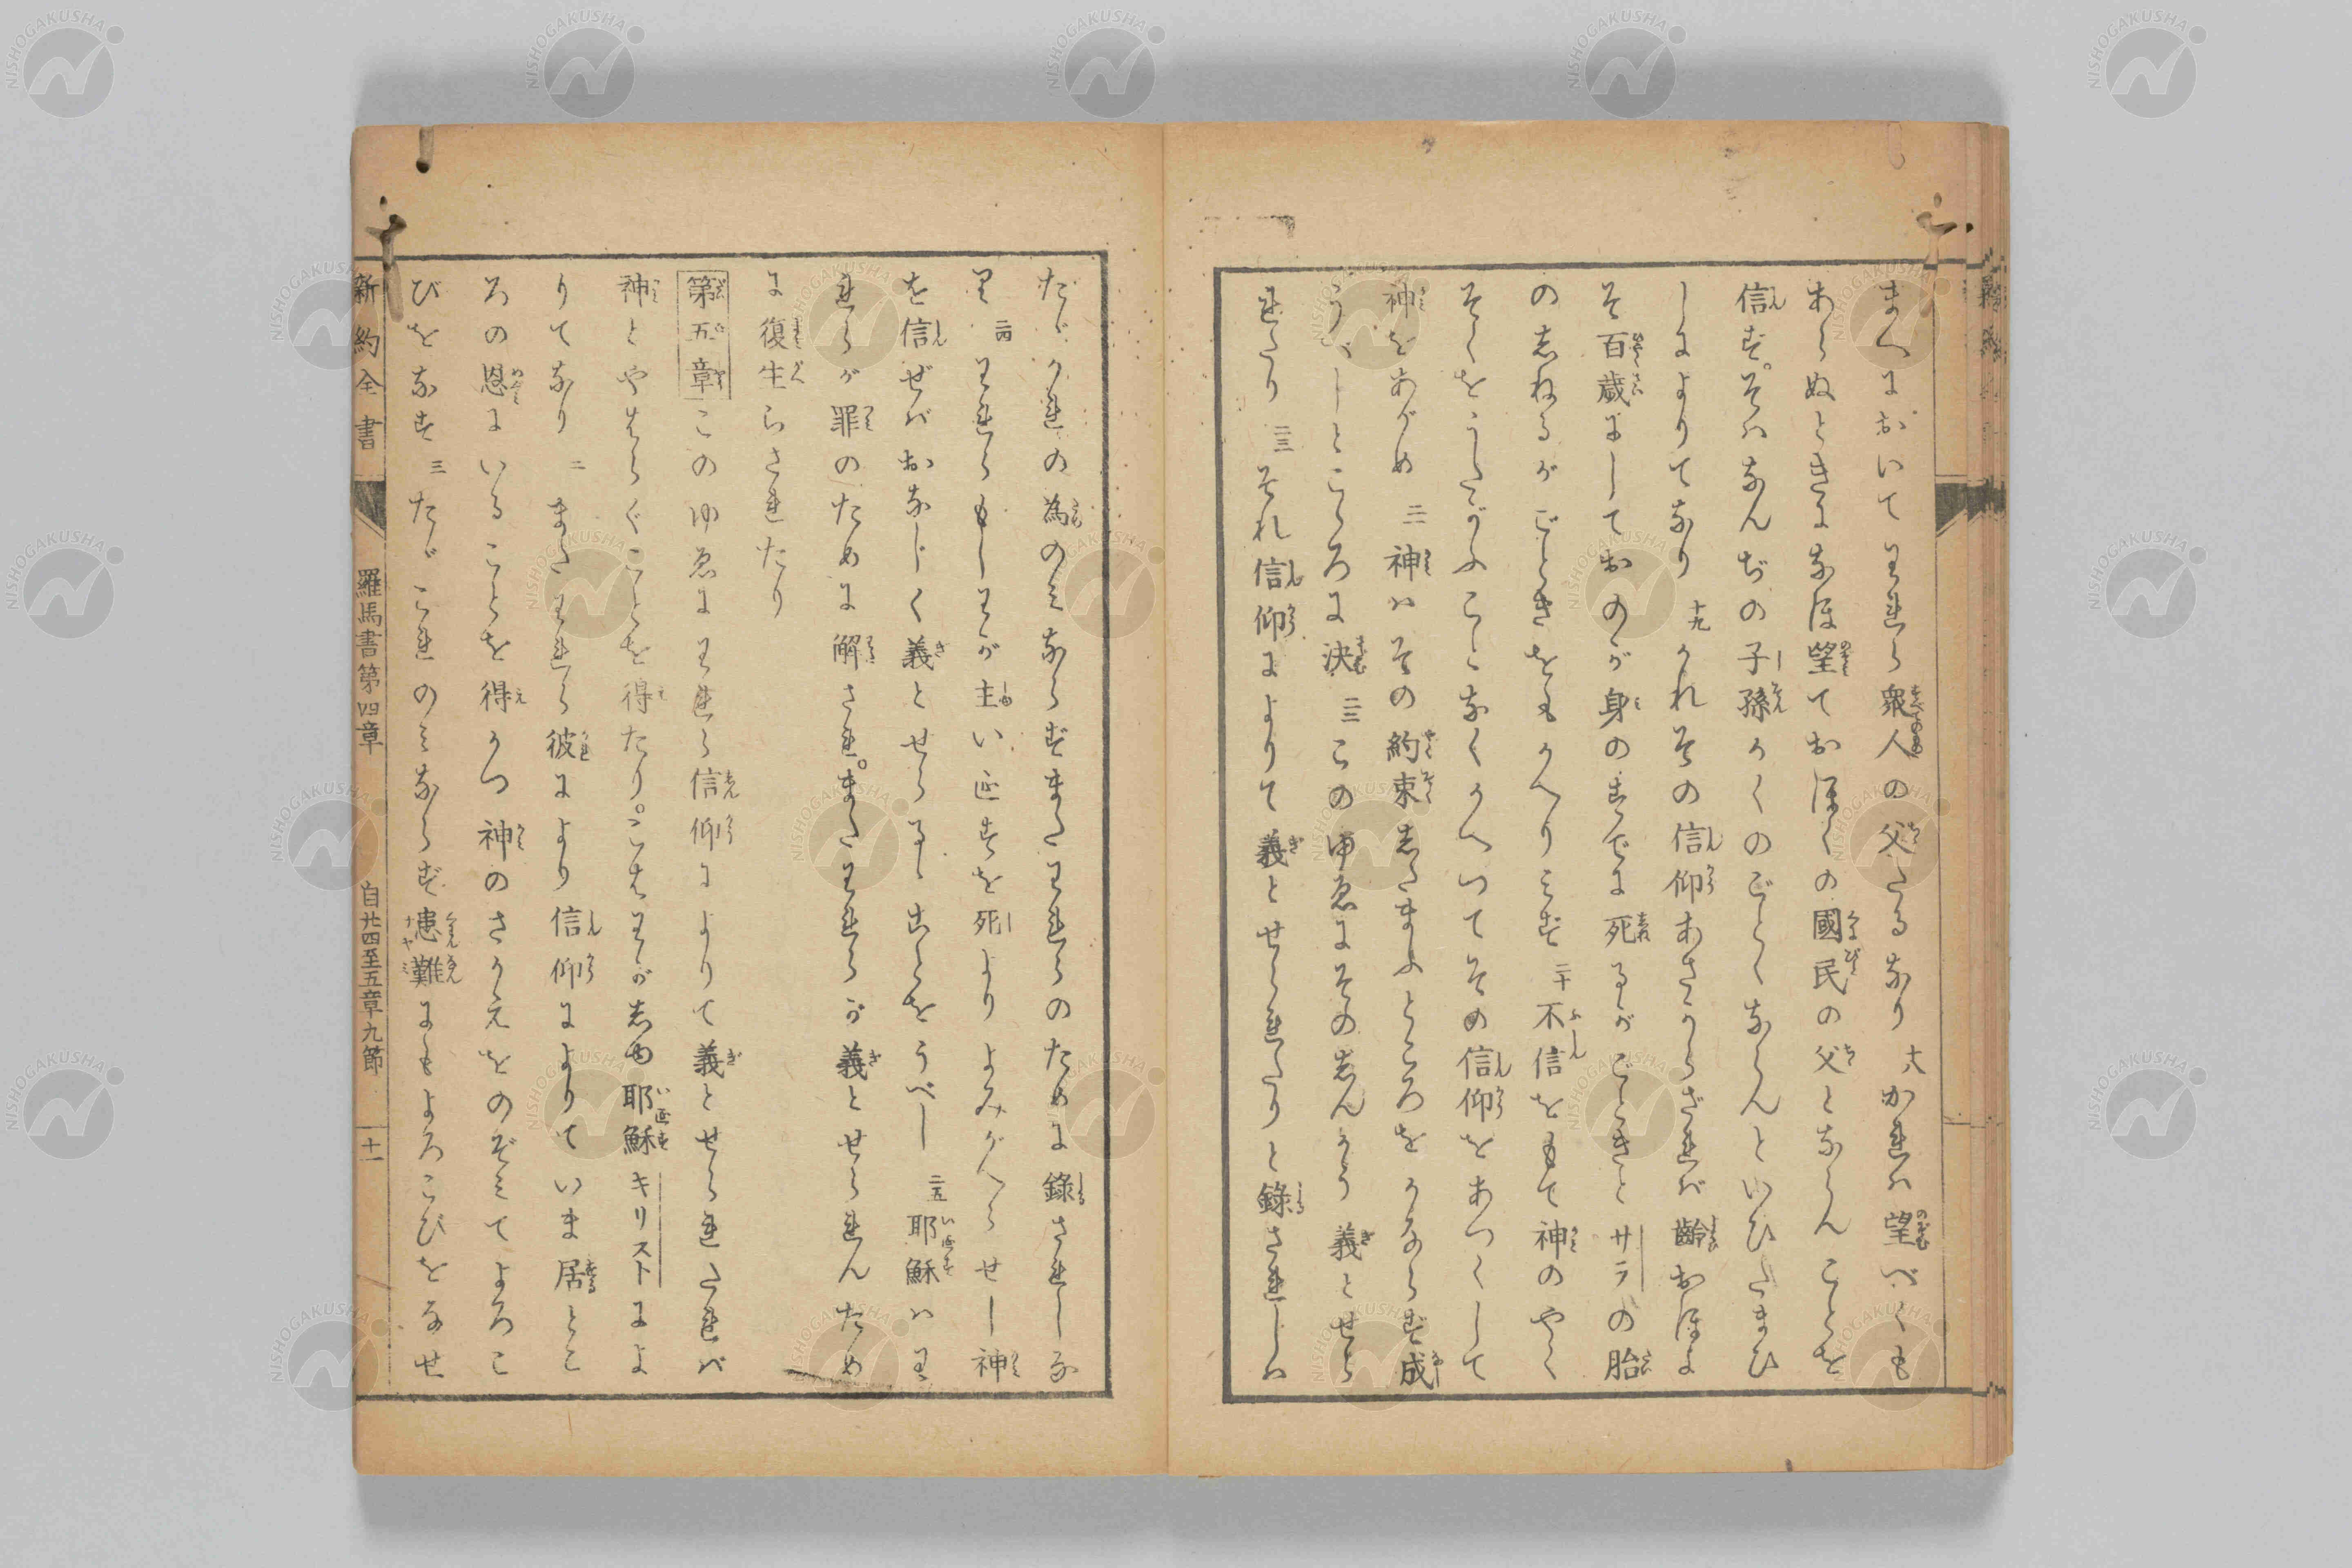 まへにおいてわれら衆人の父たるなり 十八 かれハ望べくも
あらぬときになほ望ておほくの國民の父とならんことを
信ず。そハなんぢの子孫かくのごとくならんといひたまひ
しによりてなり 十九 かれその信仰あさからざれバ齢おほよ
そ百歳にしておのが身のすでに死るがごときとサラの胎
の志ねるがごときをもかへりみず 二十 不信をもて神のやく
そくをうたがふことなくかへつてその信仰をあつくして
神をあがめ 二一 神ハその約束志たまふところをかならず成
うべしとこころに決 二二 このゆゑにその志んかう義とせら
れたり 二三 それ信仰によりて義とせられたりと錄されしハ
たゞかれの為のみならずまたわれらのために錄されしな
り 二四 われらもしわが主いゑすを死よりよみがへらせし神
を信ぜバおなじく義とせらるゝことをうべし 二五 耶穌ハわ
れらが罪のために解され。またわれらが義とせられんため
に復生らされたり
第五章 このゆゑにわれら信仰によりて義とせられたれバ
神とやはらぐことを得たり。こはわが志ゆ耶穌キリストによ
りてなり 二 またわれら彼により信仰によりていま居とこ
ろの恩にいることを得かつ神のさかえをのぞみてよろこ
びをなす 三 たゞこれのみならず患難にもよろこびをなせ
新約全書 羅馬書第四章 自廿四至五章九節 十一